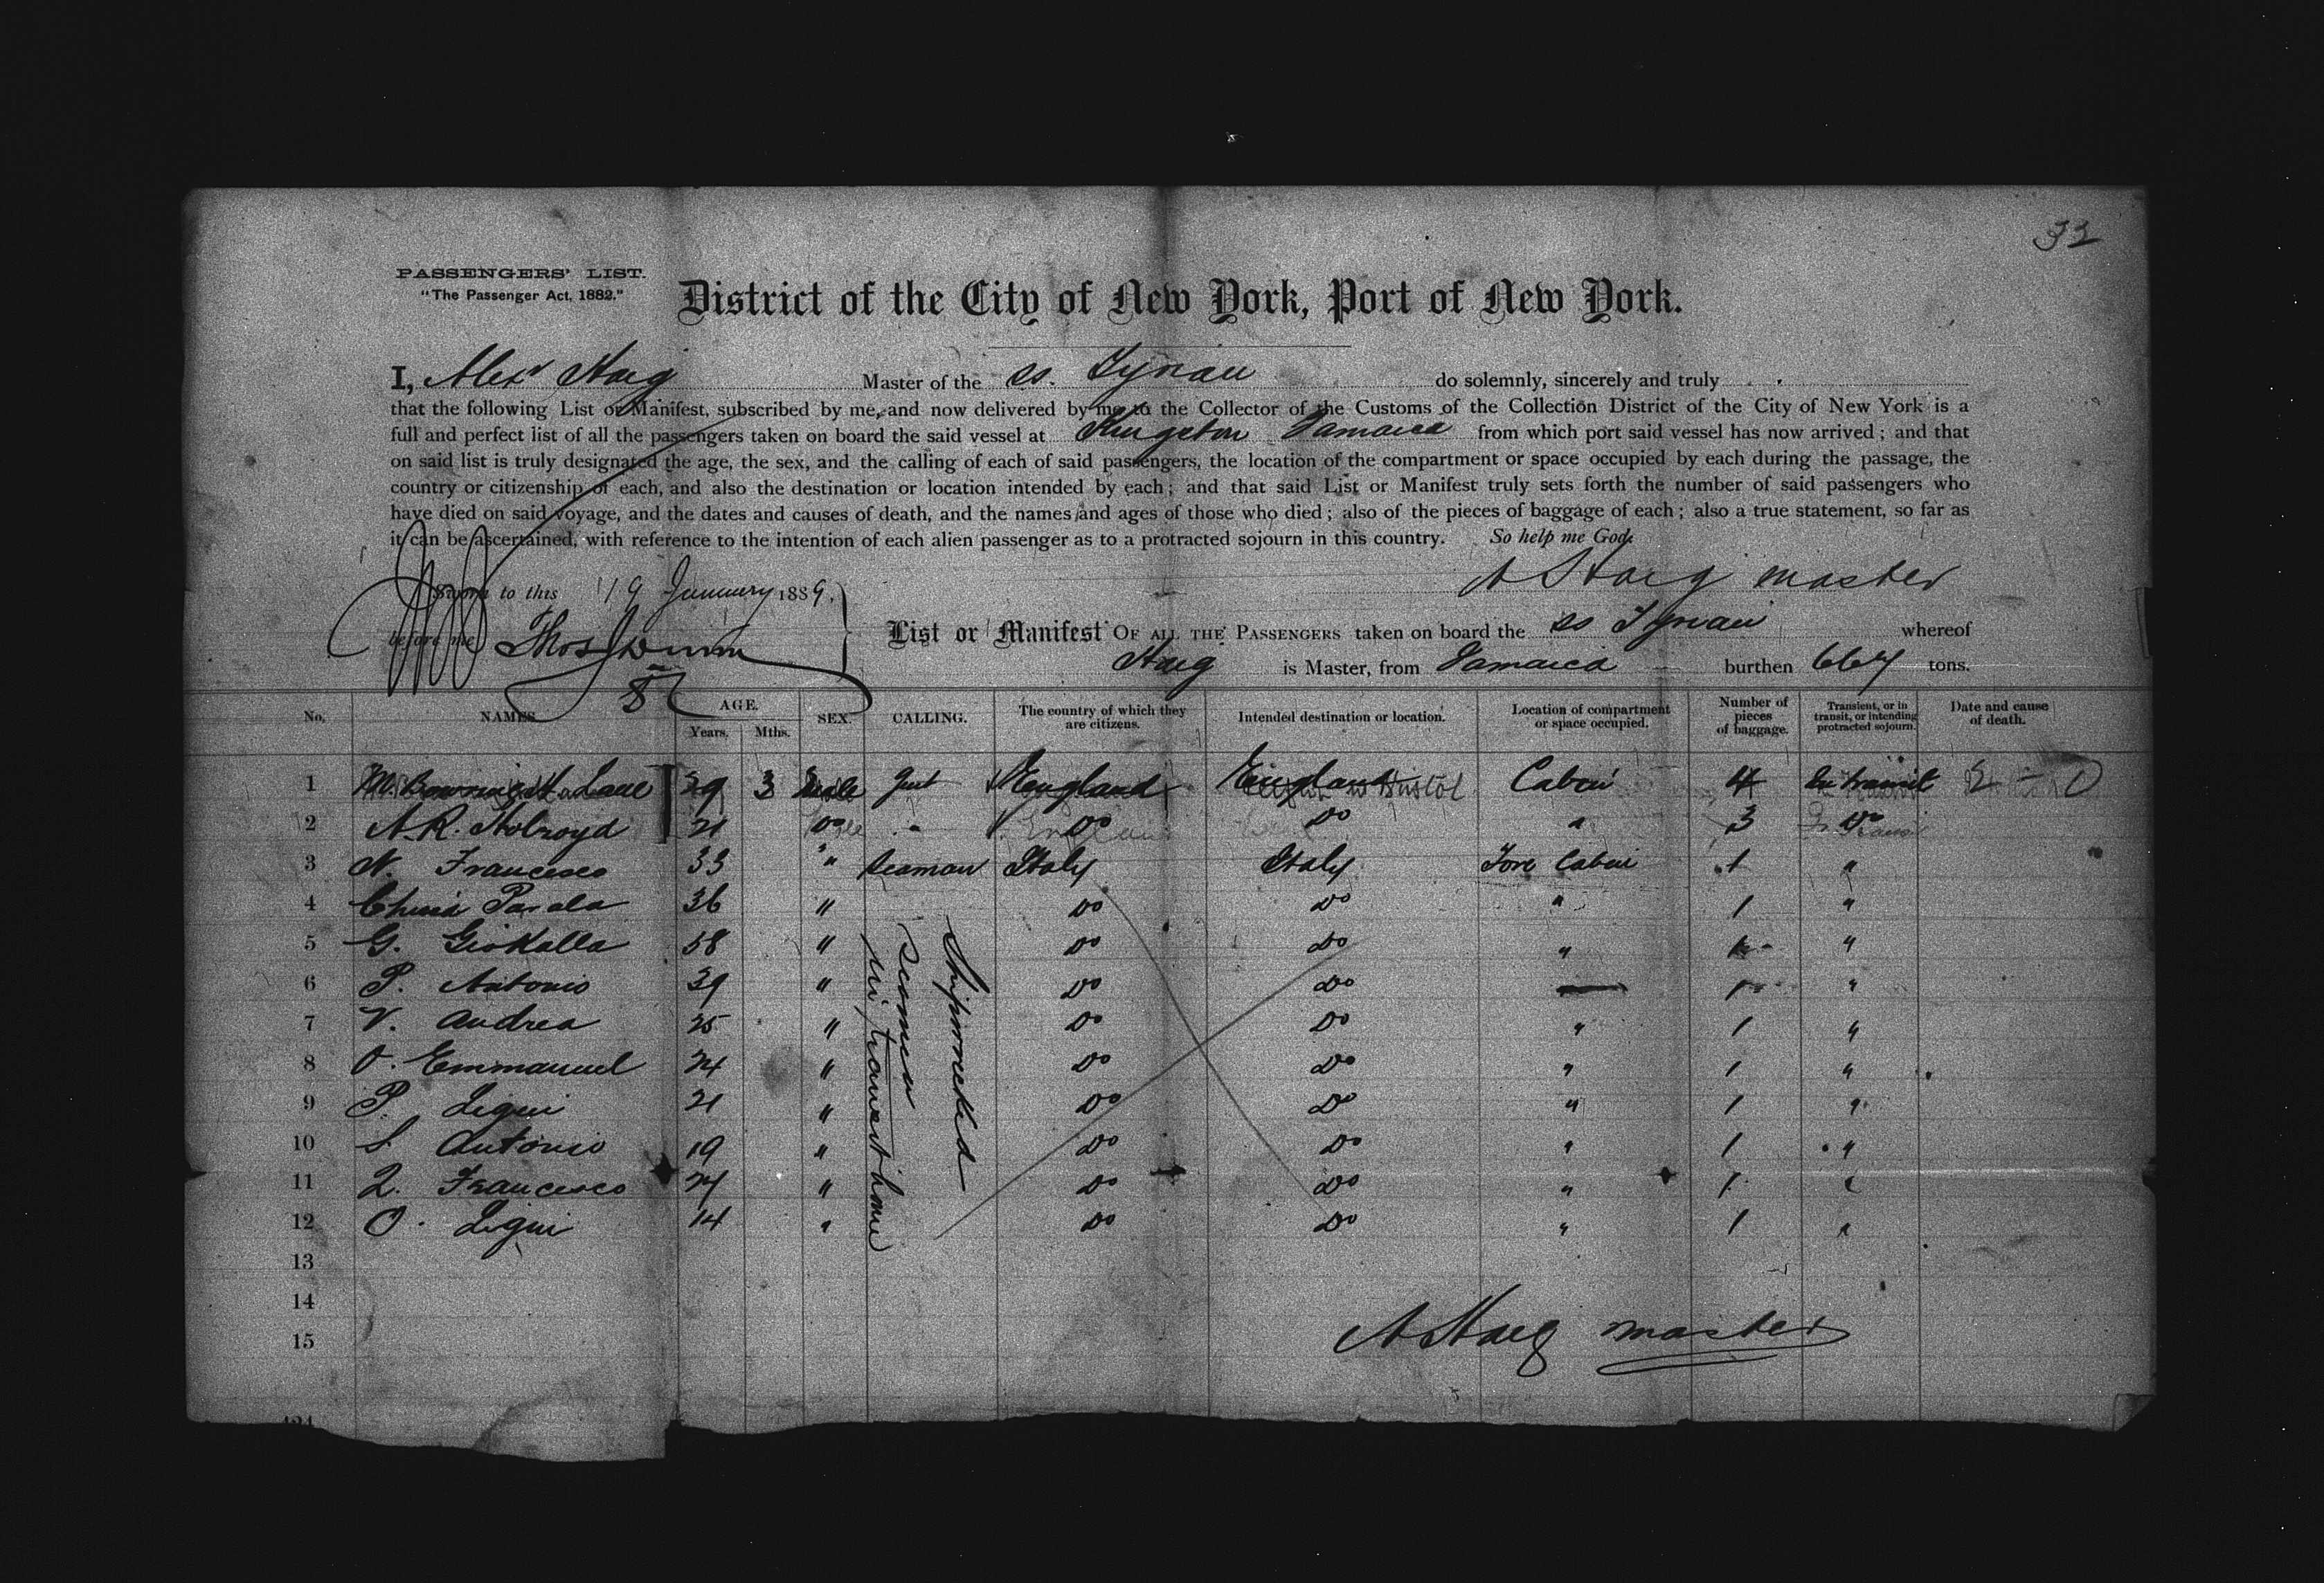 32
PASSENGERS' LIST.
"The Passenger Act, 1882."
District of the City of New York, Port of New York.
I, Alexr Haig Master of the ss. Tynian do solemnly, sincerely and truly
that the following List or Manifest, subscribed by me, and now delivered by me to the Collector of the Customs of the Collection District of the City of New York is a
full and perfect list of all the passengers taken on board the said vessel at Kingston Jamaica from which port said vessel has now arrived; and that
on said list is truly designated the age, the sex, and the calling of each of said passengers, the location of the compartment or space occupied by each during the passage, the
country or citizenship of each, and also the destination or location intended by each; and that said List or Manifest truly sets forth the number of said passengers who
have died on said voyage, and the dates and causes of death, and the names and ages of those who died; also of the pieces of baggage of each; also a true statement, so far as
it can be ascertained, with reference to the intention of each alien passenger as to a protracted sojourn in this country. So help me God.
A Haig master
Sworn to this 19 January 1889,
before me Thos
List or Manifest OF ALL THE PASSENGERS taken on board the ss Tynian whereof
Haig is Master, from Jamaica burthen 667 tons.
No. NAMES AGE. Years. Mths. SEX. CALLING. The country of which they are citizens. Intended destination or location. Location of compartment or space occupied. Number of pieces of baggage. Transient, or in transit, or intending protracted sojourn. Date and cause of death.
1 Lane 29 3 Male Gent England England Cabin 4 In transit
2 A R. Holroyd 21 Do " Do Do " 3 Do
3 N. Francesco 33 " Seaman Italy Italy Fore Cabin 1 "
4 36 " Do Do " 1 "
5 G. 58 " Do Do " 1 "
6 P. Antonio 39 " Do Do 1 "
7 V. Andrea 25 " Do Do " 1 "
8 O. Emmanuel 24 " Do Do " 1 "
9 P. Ligui 21 " Do Do " 1 "
10 S. Antonio 19 " Do Do " 1 "
11 Z. Francesco 24 " Do Do " 1 "
12 O. Ligui 14 " Do Do " 1 "
Shipwrecked
seamen
in transit home
13
14
15
A Haig master